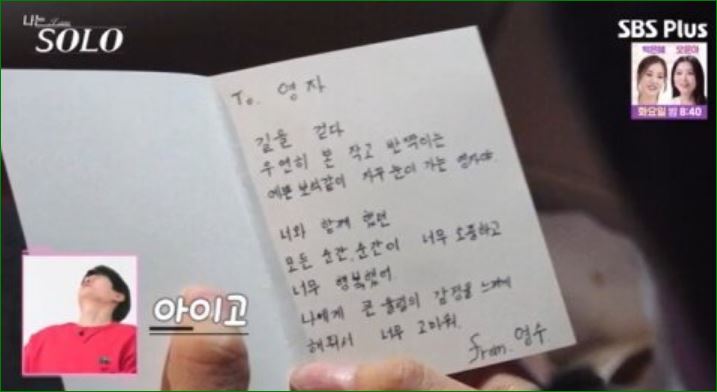 나는 Solo
SOLO
SBS Plus
박은혜 오윤아
화요일 밤 8:40
To. 영자
길을 걷다
우연히 본 작고 반짝이는
예쁜 보석같이 자꾸 눈이 가는 영자야.
너와 함께 했던
모든 순간, 순간이 너무 소중하고
너무 행복했어
나에게 큰 울림의 감정을 느끼게
해줘서 너무 고마워.
from. 영수.
아이고